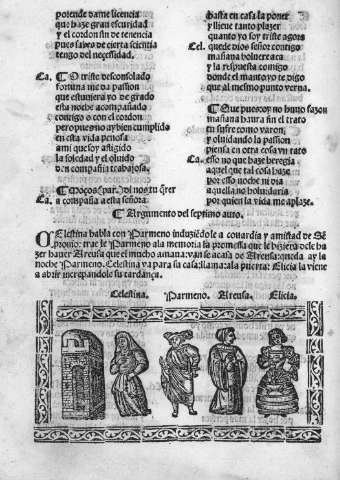 porende dame licencia
que haze gran escuridad
y el cordon sin de tenencia
pues sabes de cierta sciencia
tengo del necessidad.
Ca. ¶ O triste desconsolado
fortuna me da passion
que estuuiera yo de grado
esta noche acompañado
contigo o con el cordon
pero pues no ay bien cumplido
en esta vida penosa
ami que soy astigido
la soledad y el oluido
den compañia trabajosa.
¶ Moços (par.)
Ca. a compaña a esta señora.
hasta en casa la poner
y lleue tanto plazer
quanto yo soy triste agora
Cel. quede dios señor contigo
mañana boluere aca
y la respuesta comigo
donde el manto yo te digo
que al mismo punto verna.
¶ Que pues oy no
mañana haura fin el trato
tu sufre como varon,
y oluidando la passion
piensa en otra cosa vn rato
Ca. esso no que haze heregia
aquel que tal cosa haze
por esso noche ni dia
aquella no holuidaria
por quien la vida me aplaze.
¶ Argumento del septimo auto.
CElestina habla con Parmeno induziẽdole a concordia y amistad de Sẽ
pronio: trae le Parmeno ala memoria la promessa que le hiziera de le ha
zer hauer Areusa que el mucho amaua: van se a casa de Areusa: queda ay la
noche Parmeno. Celestina va para su casa: llama: ala puerta: Elicia la viene
a abrir increpandole su tardança.
Celestina. Parmeno. Areusa. Elicia.